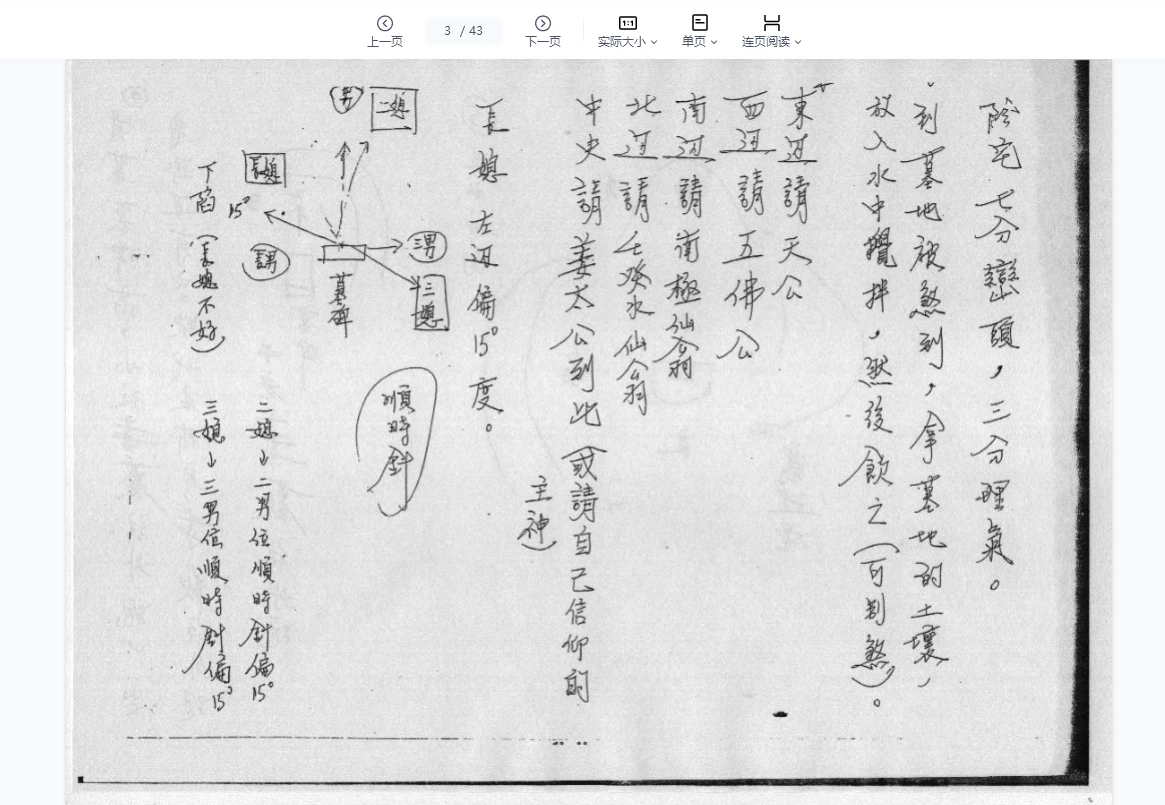 上一页
3 / 43
下一页
1:1
实际大小
单页
连页阅读
陰宅七分巒頭，三分理氣。
到墓地被煞到，拿墓地的土壤，
放入水中攪拌，然後飲之（可制煞）。
東边請天公
西边請五佛公
南边請南極仙翁
北边請壬癸水仙翁
中央請姜太公到此（或請自己信仰的
主神）
長媳左边偏15°度。
順時針
男
二媳
長媳
15°
三男
三媳
墓碑
長男
下陷（長媳不好）
二媳→二男位順時針偏15°
三媳→三男位順時針偏15°